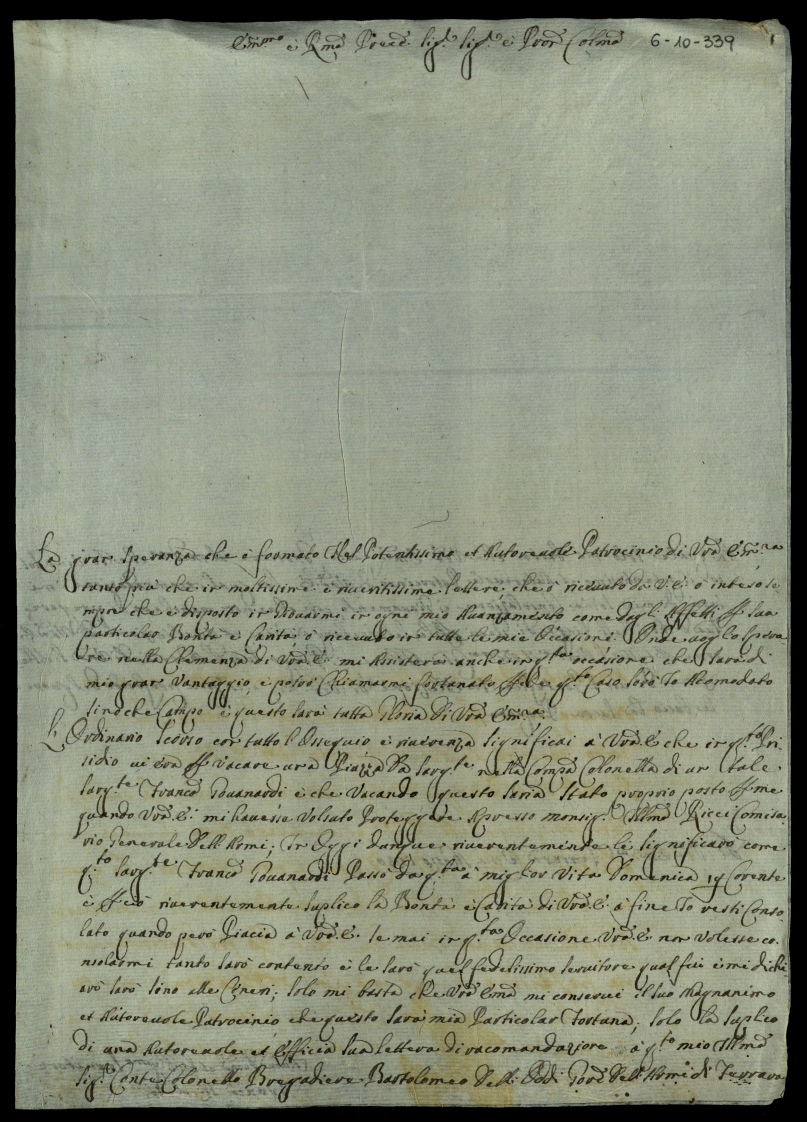 Em.mo è R.mo Prece Sig.r Sig.r è Pron Colmo 6-10-339
La gran Speranza che è formato Nel Potentissimo et Autoreuole Patrocinio di Vra Em.za
tanto più che in moltissime è riueritissime lettere, che ò riceuuto da V.E. ò inteso se
mpre che è disposto in Giouarmi in ogni mio Auanzamento come dagli Effetti p sua
particolar Bontà è Carità ò riceuuto in tutte le mie Occasioni Onde uoglio spera
re nella Clemenza di Vra E. mi Assisterà anche in q.ta occasione che sarà di
mio gran Vantaggio, e potrò Chiamarmi fortunato che q.to Caso Sarò Io Acomodato
sin che Campo è questo sarà tutta Gloria Di Vra Em.za
L'Ordinario Scorso con tutto l'Ossequio è riuerenza significai à Vra E. che in q.to Pri
sidio ui era p Vacare una Piazza Da Sarg.te nella Comp.a Colonella di un tale
Sarg.te Franco Guanardi è che Vacando questo saria Stato proprio posto p me
quando Vra E. mi hauesse Voluto Proteggere Apresso monsig.r Illmo Ricci Comisa
rio Generale Dell'Armi; In Oggi dunque riuerentemente le significarò come
q.to Sarg.te Franco Guanardi Passò da q.ta à miglior Vita Domenica 19 Corente
è p ciò riuerentemente suplico la Bontà è Carità di Vra E. à fine Io resti Conso
lato quando però Piacia à Vra E. se mai in q.ta Occasione Vra E. non Volesse co
nsolarmi tanto sarò contento è le sarò quel fedelissimo seruitore qual fui è mi dichi
arò sarò sino alle Ceneri; solo mi basta che Vra Em.a mi conserui il suo Magnanimo
et Autoreuole Patrocinio che questo sarà mia Particolar Fortuna; solo la suplico
di una Autoreuole et Efficia sua lettera di racomandazione à q.to mio Illmo
Sig.r Conte Colonello Bregadiere Bartolomeo Delli Oddi Gore Dell'Armi di Ferrara